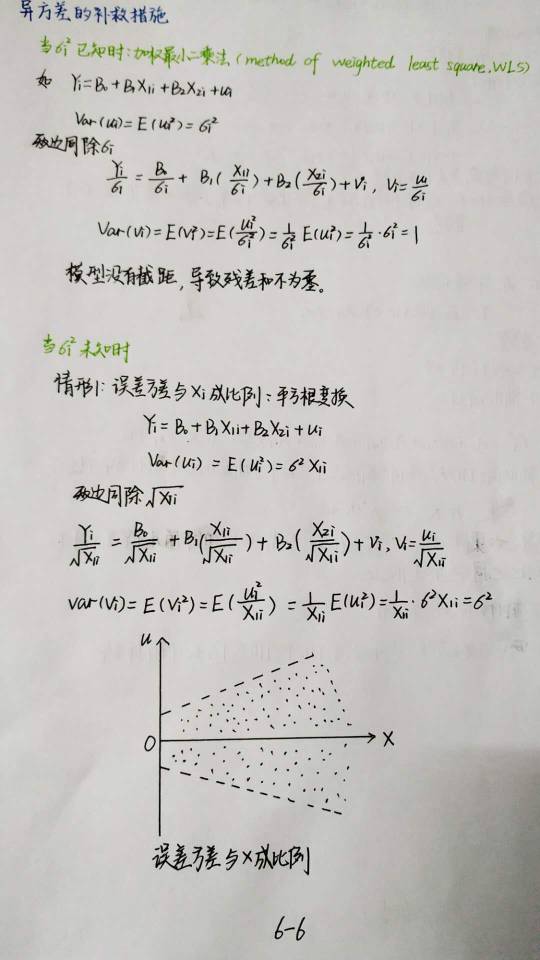 异方差的补救措施
当σi²已知时:加权最小二乘法(method of weighted least square,WLS)
如 Yi=B₀+B₁X₁i+B₂X₂i+ui
Var(ui)=E(ui²)=σi²
两边同除σi
Yi/σi = B₀/σi + B₁(X₁i/σi)+B₂(X₂i/σi)+Vi, Vi=ui/σi
Var(Vi)=E(Vi²)=E(ui²/σi²)=1/σi² E(ui²)=1/σi²·σi²=1
模型没有截距,导致残差和不为零。
当σi²未知时
情形1:误差方差与Xi成比例:平方根变换
Yi=B₀+B₁X₁i+B₂X₂i+ui
Var(ui)=E(ui²)=σ²X₁i
两边同除√X₁i
Yi/√X₁i = B₀/√X₁i + B₁(X₁i/√X₁i)+B₂(X₂i/√X₁i)+Vi, Vi=ui/√X₁i
var(Vi)=E(Vi²)=E(ui²/X₁i)=1/X₁i E(ui²)=1/X₁i·σ²X₁i=σ²
u
0
X
误差方差与X成比例
6-6